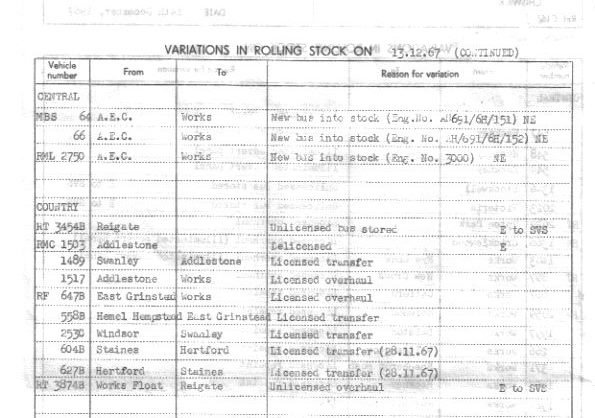 DATE 14th December, 1967
VARIATIONS IN ROLLING STOCK ON 13.12.67 (CONTINUED)
Vehicle number From To Reason for variation
CENTRAL
MBS 64 A.E.C. Works New bus into stock (Eng.No. AH691/6H/151) NE
66 A.E.C. Works New bus into stock (Eng. No. AH/691/6H/152) NE
RML 2750 A.E.C. Works New bus into stock (Eng. No. 3000) NE
COUNTRY
RT 3454B Reigate Unlicensed bus stored E to SVS
RMC 1503 Addlestone Delicensed E
1489 Swanley Addlestone Licensed transfer
1517 Addlestone Works Licensed overhaul
RF 647B East Grinstead Works Licensed overhaul
558B Hemel Hempstead East Grinstead Licensed transfer
253C Windsor Swanley Licensed transfer
604B Staines Hertford Licensed transfer (28.11.67)
627B Hertford Staines Licensed transfer (28.11.67)
RT 3874B Works Float Reigate Unlicensed overhaul E to SVS